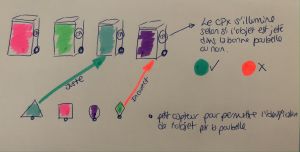 Le CPX s'illumine
selon si l'objet est jeté
dans la bonne poubelle
ou non.
juste
incorrect
petit capteur pour permettre l'identification
de l'objet par la poubelle